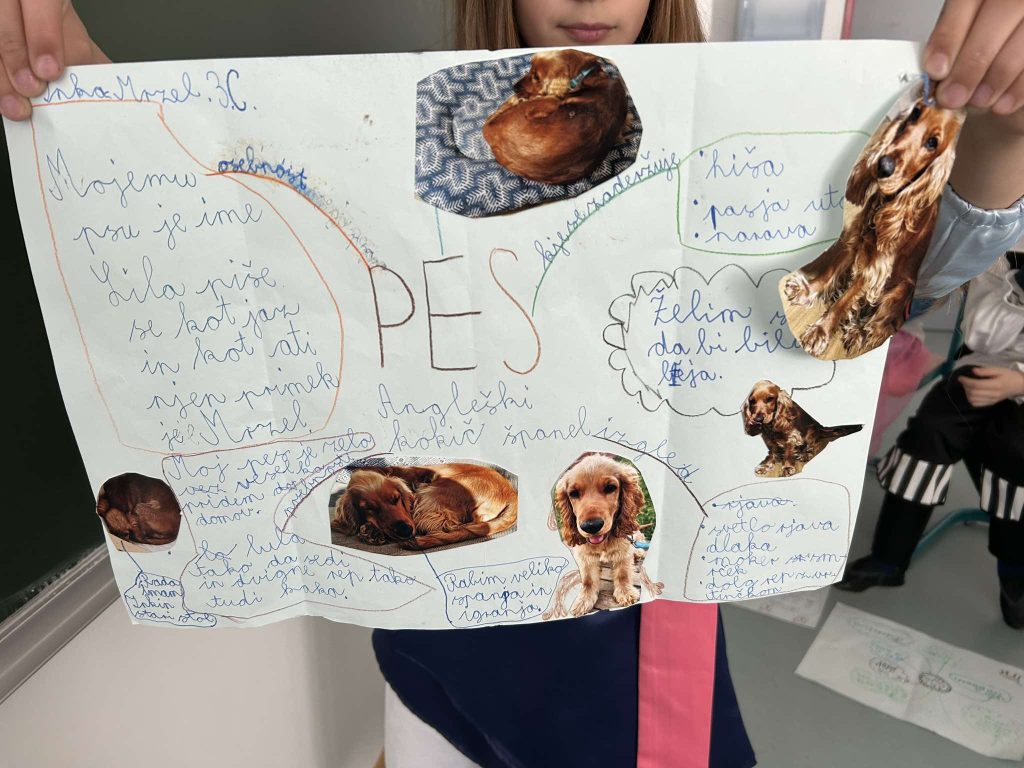 Inka Mrzel. 3.C.
osebnost
Mojemu
psu je ime
Lila piše
se kot jaz
in kot ati
njen priimek
je? Mrzel.
PES
kje se zadržuje
• hiša
• pasja uta
• narava
Želim s
da bi bila
lišja.
Angleški
kokič španel izgled
Moj pes je zelo
vesel ko
pridem
domov.
Ko lula
tako da sedi
in dvigne rep tako
tudi kaka.
Rada
imam
Rabim veliko
spanja in
igranja.
• rjava.
• svetlo rjava
dlaka
• moker smrček
• dolg rep